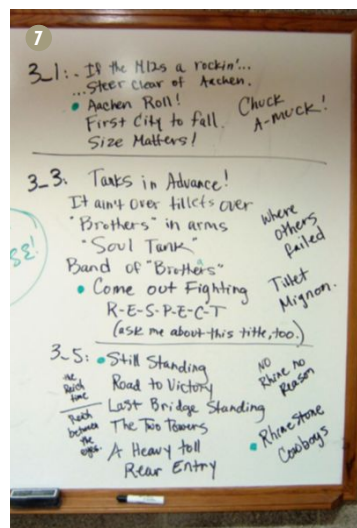 7
3_1: - If the M12s a rockin'...
...Steer clear of Aachen.
• Aachen Roll!
First City to fall.
Size Matters!
Chuck
A-muck!
3_3: Tanks in Advance!
It ain't over tillets over
"Brothers" in arms
"Soul Tank"
Band of "Brothers"
• Come out Fighting
R-E-S-P-E-C-T
(ask me about this title, too.)
where
others
failed
Tillet
Mignon.
SE!
3_5: • Still Standing
Road to Victory
Last Bridge Standing
The Two Towers
A Heavy toll
Rear Entry
the
Reich
time
Reich
between
the
eyes.
No
Rhine no
Reason
• Rhinestone
Cowboys